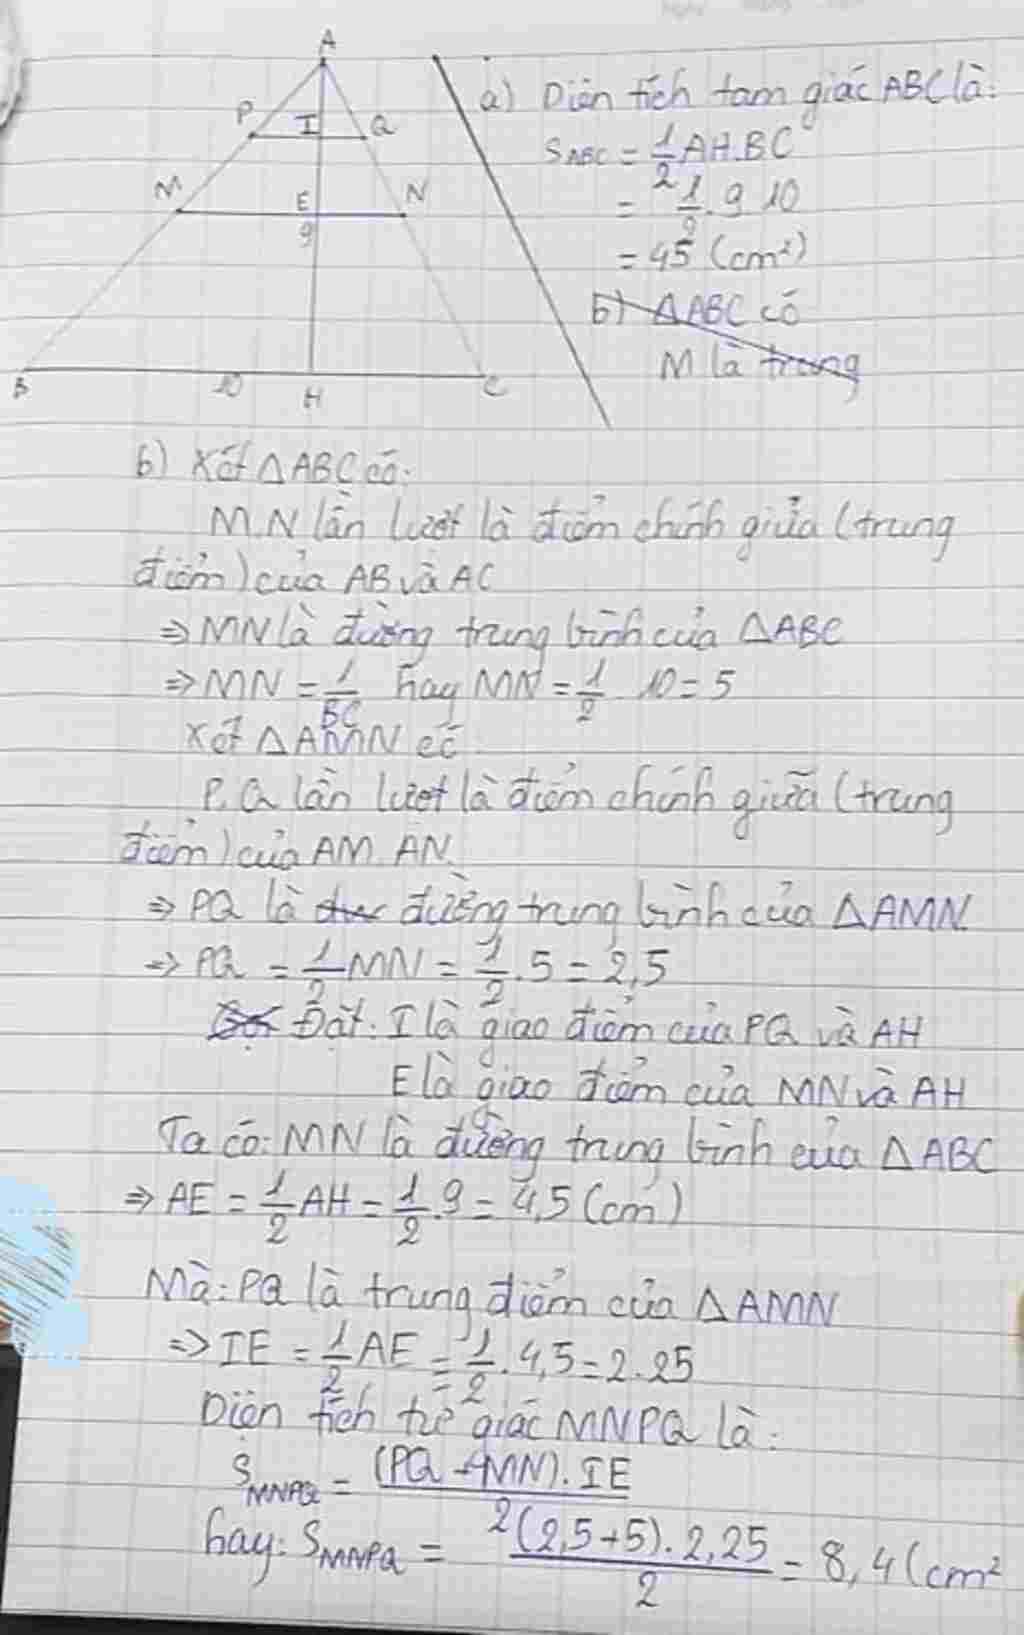 A
P I Q
M E N
9
B 10 H C
a) Diện tích tam giác ABC là:
S ABC = 1/2 AH.BC
= 1/2 . 9 10
= 45 (cm²)
b) △ABC có
M là trung
b) Xét △ABC có:
M.N lần lượt là điểm chính giữa (trung
điểm) của AB và AC
⇒ MN là đường trung bình của △ABC
⇒ MN = 1/BC hay MN = 1/2 10 = 5
Xét △AMN có
P.Q lần lượt là điểm chính giữa (trung
điểm) của AM. AN.
⇒ PQ là đường trung bình của △AMN.
⇒ PQ = 1/2 MN = 1/2 . 5 = 2,5
Đặt. I là giao điểm của PQ và AH
E là giao điểm của MN và AH
Ta có: MN là đường trung bình của △ABC
⇒ AE = 1/2 AH = 1/2 . 9 = 4,5 (cm)
Mà: PQ là trung điểm của △AMN
⇒ IE = 1/2 AE = 1/2 . 4,5 = 2.25
Diện tích tứ giác MNPQ là:
S MNPQ = (PQ + MN). IE / 2
hay: S MNPQ = (2,5+5). 2,25 / 2 = 8,4 (cm²